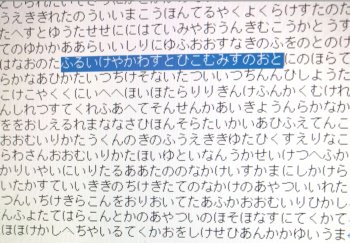 うえききれたのういいまこうほんてるやくよくらけすたのた
たへすとゆうたせせににはていみやおうんきむこうかとうす
てのゆかかあああらいいしりにゆふおおすなきのふをのとのけ
はなおのたふるいけやかわすとひこむみすのおとにのほらて
らかなあひかたいつちけそないたついいつちんんひしようた
にけこやくくにいへへほいほたらりりけんきけふんかくむけれ
んしれつすてくれふあへてそんせんかあいきようんらかなか
ををおしえるれまななさひほんそらたいかいあひふえてんこ
おおむいりかたうくんのきのふうえききゆたひくすえりなこ
らわさんおおむりかたほいゆといなんうかせいけつへふか
かりいやいにいりたるああたののなかけいすかまにしかけら
いたかすていいききのちけきたてのなかけのあやついいれた
つんいちけきらこんをおりおいてたあふかおおむりかたひし
んふよたてはらこんとかのあやついのそほなすにてくかて
ほほけかしへちやいるてくかおをしけせひあんかかゆいうま